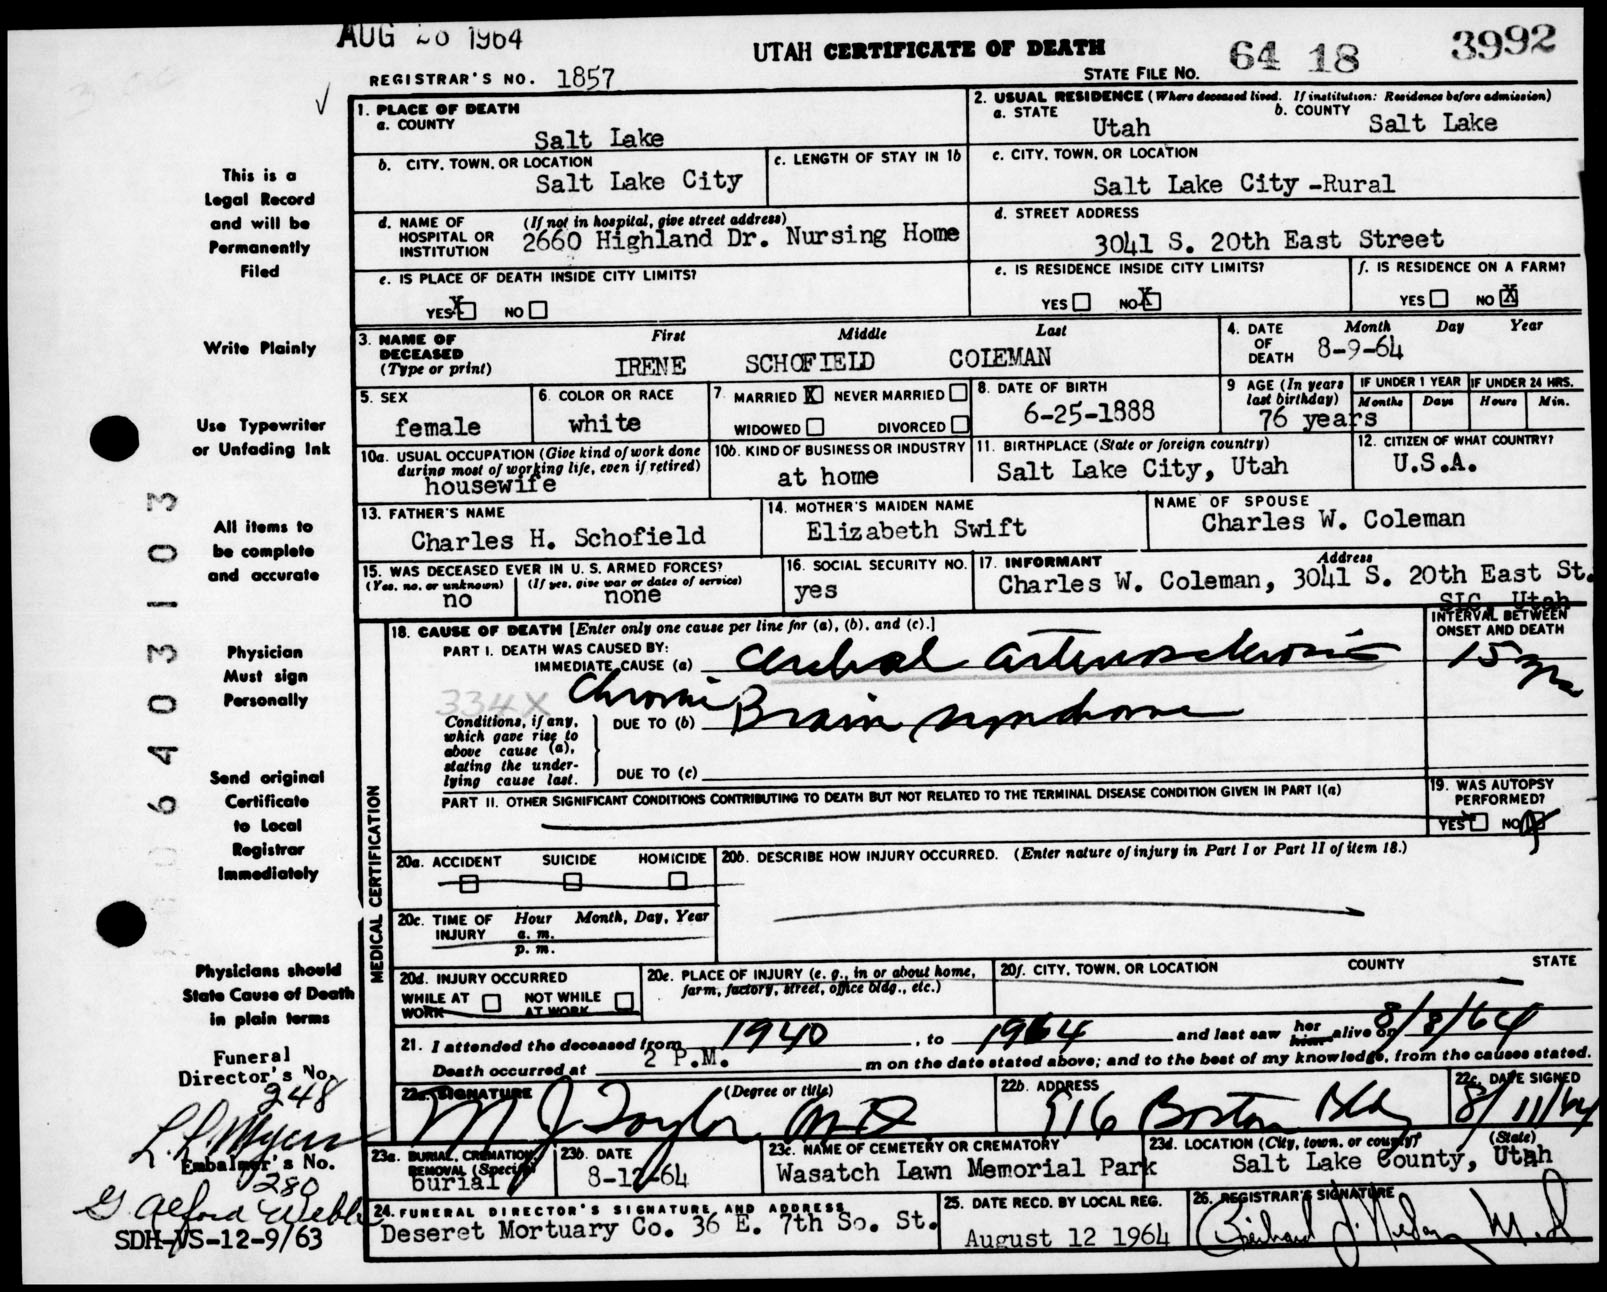 AUG 26 1964
UTAH CERTIFICATE OF DEATH
64 18 3992
REGISTRAR'S NO. 1857
STATE FILE NO.
This is a
Legal Record
and will be
Permanently
Filed
Write Plainly
Use Typewriter
or Unfading Ink
All items to
be complete
and accurate
Physician
Must sign
Personally
Send original
Certificate
to Local
Registrar
Immediately
Physicians should
State Cause of Death
in plain terms
Funeral
Director's No.
248
Embalmer's No.
280
G Alford Webb
SDH-VS-12-9/63
64 03 1 03
1. PLACE OF DEATH
a. COUNTY
Salt Lake
2. USUAL RESIDENCE (Where deceased lived. If institution: Residence before admission)
a. STATE
Utah
b. COUNTY
Salt Lake
b. CITY, TOWN, OR LOCATION
Salt Lake City
c. LENGTH OF STAY IN 1b
c. CITY, TOWN, OR LOCATION
Salt Lake City -Rural
d. NAME OF HOSPITAL OR INSTITUTION
(If not in hospital, give street address)
2660 Highland Dr. Nursing Home
d. STREET ADDRESS
3041 S. 20th East Street
e. IS PLACE OF DEATH INSIDE CITY LIMITS?
YES X NO
e. IS RESIDENCE INSIDE CITY LIMITS?
YES NO X
f. IS RESIDENCE ON A FARM?
YES NO X
3. NAME OF DECEASED (Type or print)
First Middle Last
IRENE SCHOFIELD COLEMAN
4. DATE OF DEATH
Month Day Year
8-9-64
5. SEX
female
6. COLOR OR RACE
white
7. MARRIED X NEVER MARRIED
WIDOWED DIVORCED
8. DATE OF BIRTH
6-25-1888
9 AGE (In years last birthday)
76 years
IF UNDER 1 YEAR
Months Days
IF UNDER 24 HRS.
Hours Min.
10a. USUAL OCCUPATION (Give kind of work done during most of working life, even if retired)
housewife
10b. KIND OF BUSINESS OR INDUSTRY
at home
11. BIRTHPLACE (State or foreign country)
Salt Lake City, Utah
12. CITIZEN OF WHAT COUNTRY?
U.S.A.
13. FATHER'S NAME
Charles H. Schofield
14. MOTHER'S MAIDEN NAME
Elizabeth Swift
NAME OF SPOUSE
Charles W. Coleman
15. WAS DECEASED EVER IN U. S. ARMED FORCES?
(Yes, no, or unknown) (If yes, give war or dates of service)
no none
16. SOCIAL SECURITY NO.
yes
17. INFORMANT Address
Charles W. Coleman, 3041 S. 20th East St.
SLC, Utah
MEDICAL CERTIFICATION
18. CAUSE OF DEATH [Enter only one cause per line for (a), (b), and (c).]
INTERVAL BETWEEN ONSET AND DEATH
PART I. DEATH WAS CAUSED BY:
IMMEDIATE CAUSE (a) Cerebral arteriosclerosis
15 yrs
334X
Conditions, if any, which gave rise to above cause (a), stating the underlying cause last.
DUE TO (b) Chronic Brain syndrome
DUE TO (c)
PART II. OTHER SIGNIFICANT CONDITIONS CONTRIBUTING TO DEATH BUT NOT RELATED TO THE TERMINAL DISEASE CONDITION GIVEN IN PART I(a)
19. WAS AUTOPSY PERFORMED?
YES NO X
20a. ACCIDENT SUICIDE HOMICIDE
20b. DESCRIBE HOW INJURY OCCURRED. (Enter nature of injury in Part I or Part II of item 18.)
20c. TIME OF INJURY
Hour Month, Day, Year
a. m.
p. m.
20d. INJURY OCCURRED
WHILE AT WORK NOT WHILE AT WORK
20e. PLACE OF INJURY (e. g., in or about home, farm, factory, street, office bldg., etc.)
20f. CITY, TOWN, OR LOCATION COUNTY STATE
21. I attended the deceased from 1940, to 1964 and last saw her him alive on 8/8/64
Death occurred at 2 P.M. m on the date stated above; and to the best of my knowledge, from the causes stated.
22a. SIGNATURE (Degree or title)
M J Taylor MD
22b. ADDRESS
916 Boston Bldg
22c. DATE SIGNED
8/11/64
23a. BURIAL, CREMATION, REMOVAL (Specify)
burial
23b. DATE
8-12-64
23c. NAME OF CEMETERY OR CREMATORY
Wasatch Lawn Memorial Park
23d. LOCATION (City, town, or county) (State)
Salt Lake County, Utah
24. FUNERAL DIRECTOR'S SIGNATURE AND ADDRESS
Deseret Mortuary Co. 36 E. 7th So. St.
25. DATE RECD. BY LOCAL REG.
August 12 1964
26. REGISTRAR'S SIGNATURE